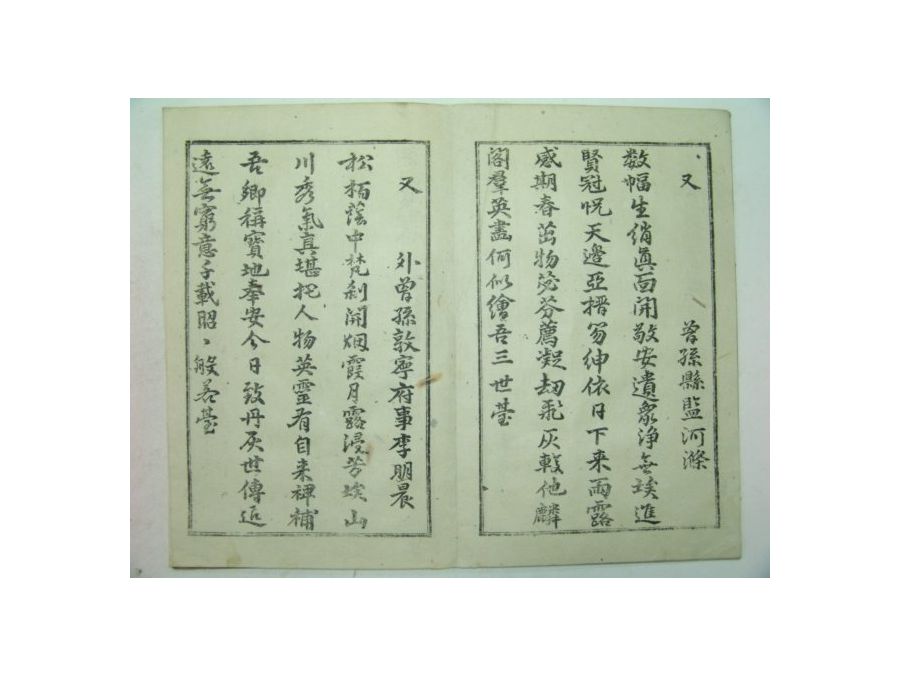 又
曾孫縣監河滌
数幅生綃眞面開敬安遺象淨無埃進
賢冠怳天邊亞搢笏紳依日下来雨露
感期春茁物苾芬薦凝劫飛灰較他麟
閣羣英畵何似繪吾三世䑓
又
外曾孫敦寧府事李朋晨
松栢蔭中梵刹開烟霞月露浸芳埃山
川秀氣真堪托人物英靈有自来裨補
吾鄉稱寶地奉安今日致丹灰世傳近
遠無窮意千載昭〻般若䑓